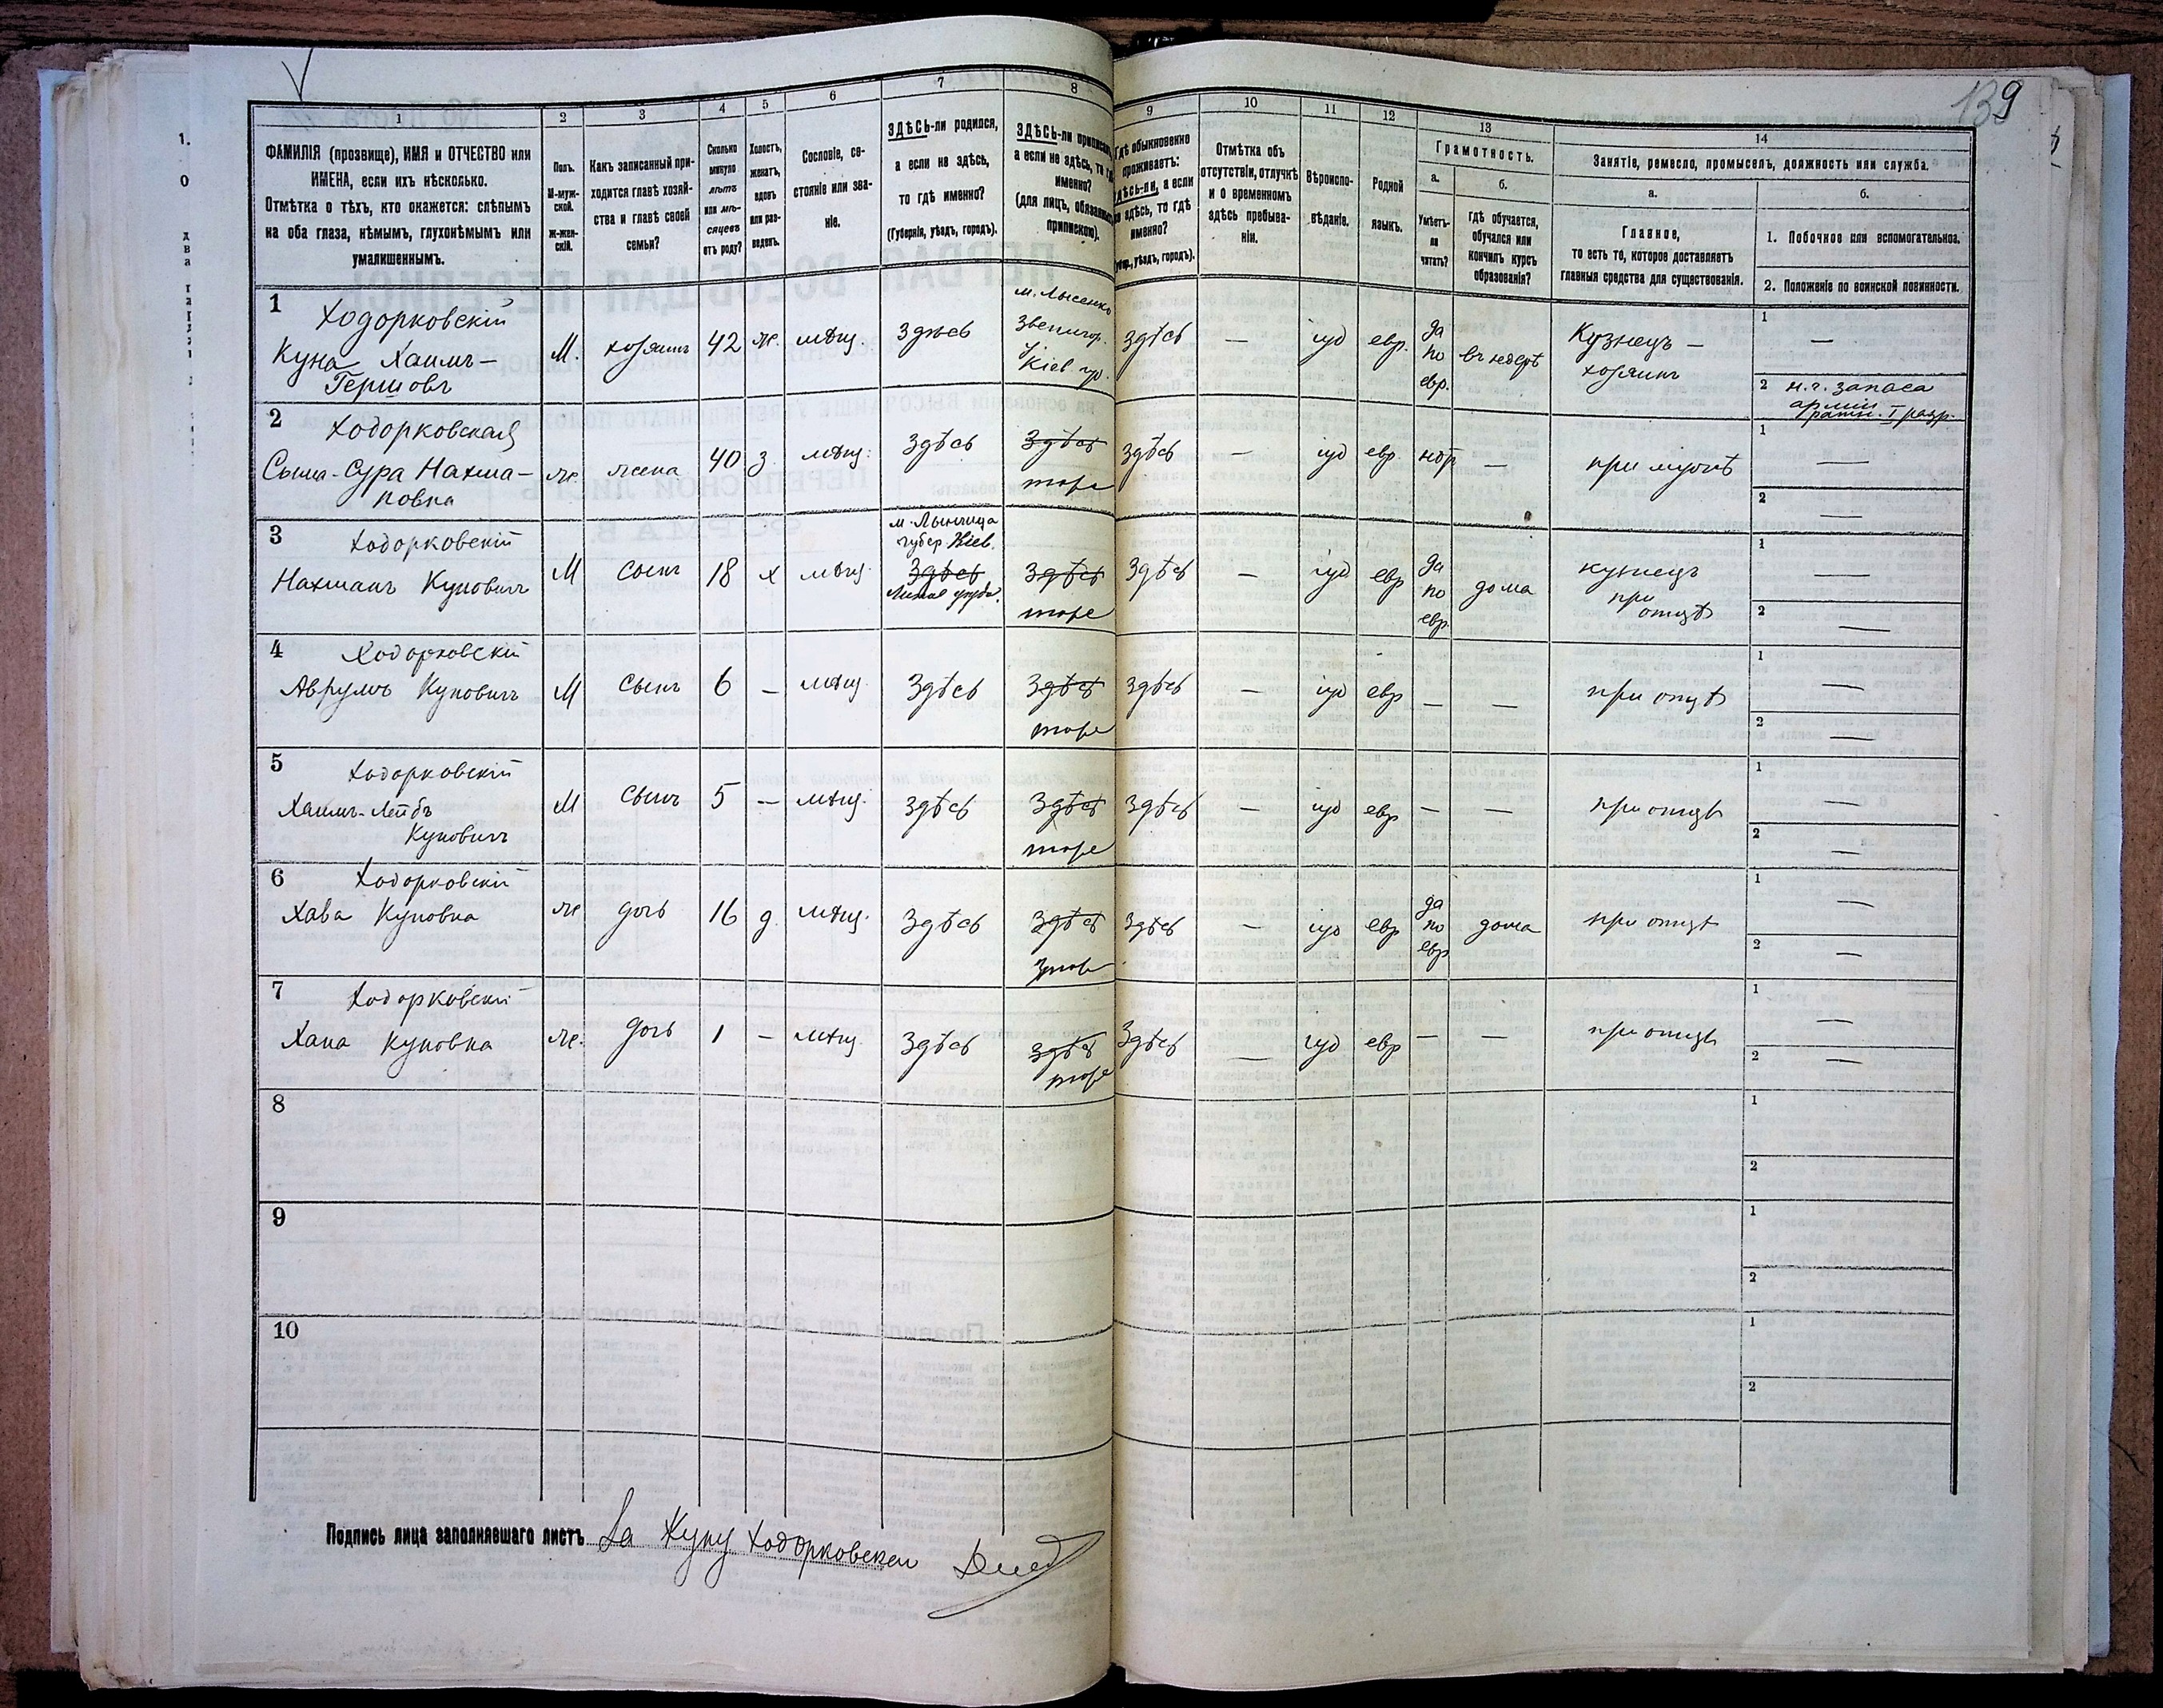 139
1 2 3 4 5 6 7 8 9 10 11 12 13 14
ФАМИЛІЯ (прозвище), ИМЯ и ОТЧЕСТВО или
ИМЕНА, если ихъ нѣсколько.
Отмѣтка о тѣхъ, кто окажется: слѣпымъ
на оба глаза, нѣмымъ, глухонѣмымъ или
умалишеннымъ.
Полъ.
М-муж-
ской.
Ж-жен-
скій.
Какъ записанный при-
ходится главѣ хозяй-
ства и главѣ своей
семьи?
Сколько
минуло
лѣтъ
или мѣ-
сяцевъ
отъ роду?
Холостъ,
женатъ,
вдовъ
или раз-
веденъ.
Сословіе, со-
стояніе или зва-
ніе.
ЗДѢСЬ-ли родился,
а если не здѣсь,
то гдѣ именно?
(Губернія, уѣздъ, городъ).
ЗДѢСЬ-ли приписанъ,
а если не здѣсь, то гдѣ
именно?
(для лицъ, обязанныхъ
припискою).
Гдѣ обыкновенно
проживаетъ:
здѣсь-ли, а если
не здѣсь, то гдѣ
именно?
(губ., уѣздъ, городъ).
Отмѣтка объ
отсутствіи, отлучкѣ
и о временномъ
здѣсь пребыва-
ніи.
Вѣроиспо-
вѣданіе.
Родной
языкъ.
Грамотность.
а.
Умѣетъ-
ли
читать?
б.
гдѣ обучается,
обучался или
кончилъ курсъ
образованія?
Занятіе, ремесло, промыселъ, должность или служба.
а.
Главное,
то есть то, которое доставляетъ
главныя средства для существованія.
б.
1. Побочное или вспомогательное.
2. Положеніе по воинской повинности.
1
Ходорковскій
Куна Хаимъ-
Гершовъ
М. хозяинъ 42 ж. мѣщ. здѣсь
м. Лысенко
Звенигор.
у.
Кіев. гу.
здѣсь — іуд евр.
да
по
евр.
въ хедерѣ
Кузнецъ —
хозяинъ
1 —
2 н.ч. запаса
арміи
ратн. I разр.
2
Ходорковская
Сыма-Сура Нахма-
новна
ж. жена 40 з. мѣщ. здѣсь здѣсь
тоже
здѣсь — іуд евр. нѣт — при мужѣ
1 —
2 —
3
Ходорковскій
Нахманъ Куновичъ
М сынъ 18 х мѣщ.
губер Кіев.
здѣсь
здѣсь
тоже
здѣсь — іуд евр
да
по
евр.
дома
кузнецъ
при
отцѣ
1 —
2 —
4
Ходорковскій
Аврумъ Куновичъ
М сынъ 6 — мѣщ. здѣсь здѣсь
тоже
здѣсь — іуд евр — — при отцѣ
1 —
2 —
5
Ходорковскій
Хаимъ-Лейбъ
Куновичъ
М сынъ 5 — мѣщ. здѣсь здѣсь
тоже
здѣсь — іуд евр — — при отцѣ
1 —
2 —
6
Ходорковскій
Хава Куновна
ж дочь 16 д. мѣщ. здѣсь здѣсь
тоже
здѣсь — іуд евр
да
по
евр
дома при отцѣ
1 —
2 —
7
Ходорковскій
Хана Куновна
ж. дочь 1 — мѣщ. здѣсь здѣсь
тоже
здѣсь — іуд евр — — при отцѣ
1 —
2 —
8
1
2
9
1
2
10
1
2
Подпись лица заполнявшаго листъ За Куну Ходорковскаго